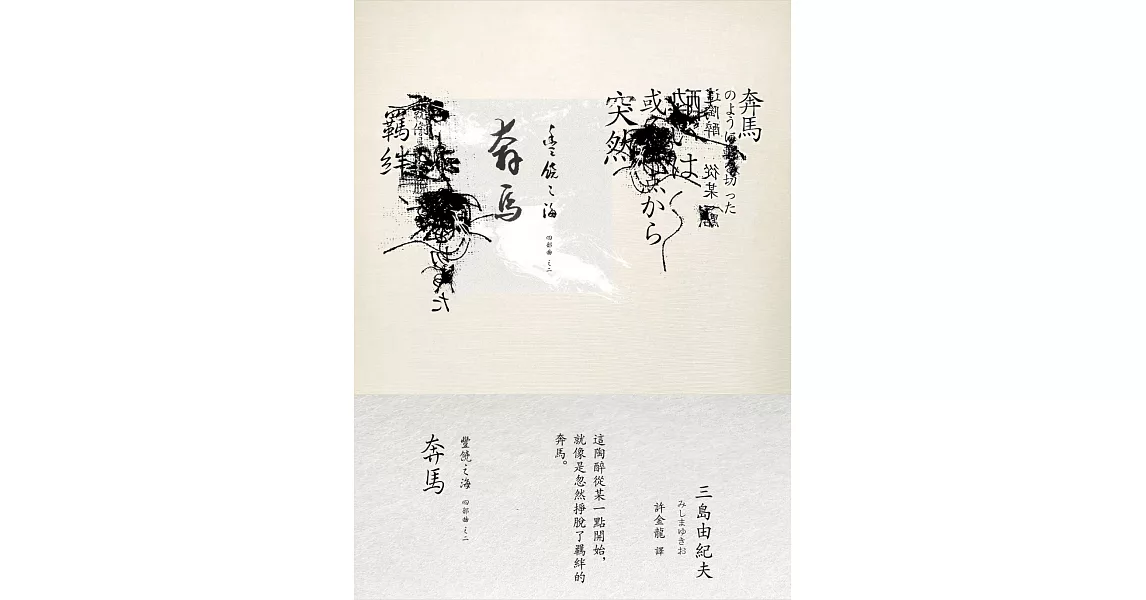 奔馬
のように
切った
從某
は
突然
から
豐饒之海
四部曲之二
奔馬
羈絆
た
三島由紀夫
みしまゆきお
許金龍 譯
這陶醉從某一點開始，
就像是忽然掙脫了羈絆的
奔馬。
豐饒之海 四部曲之二
奔馬